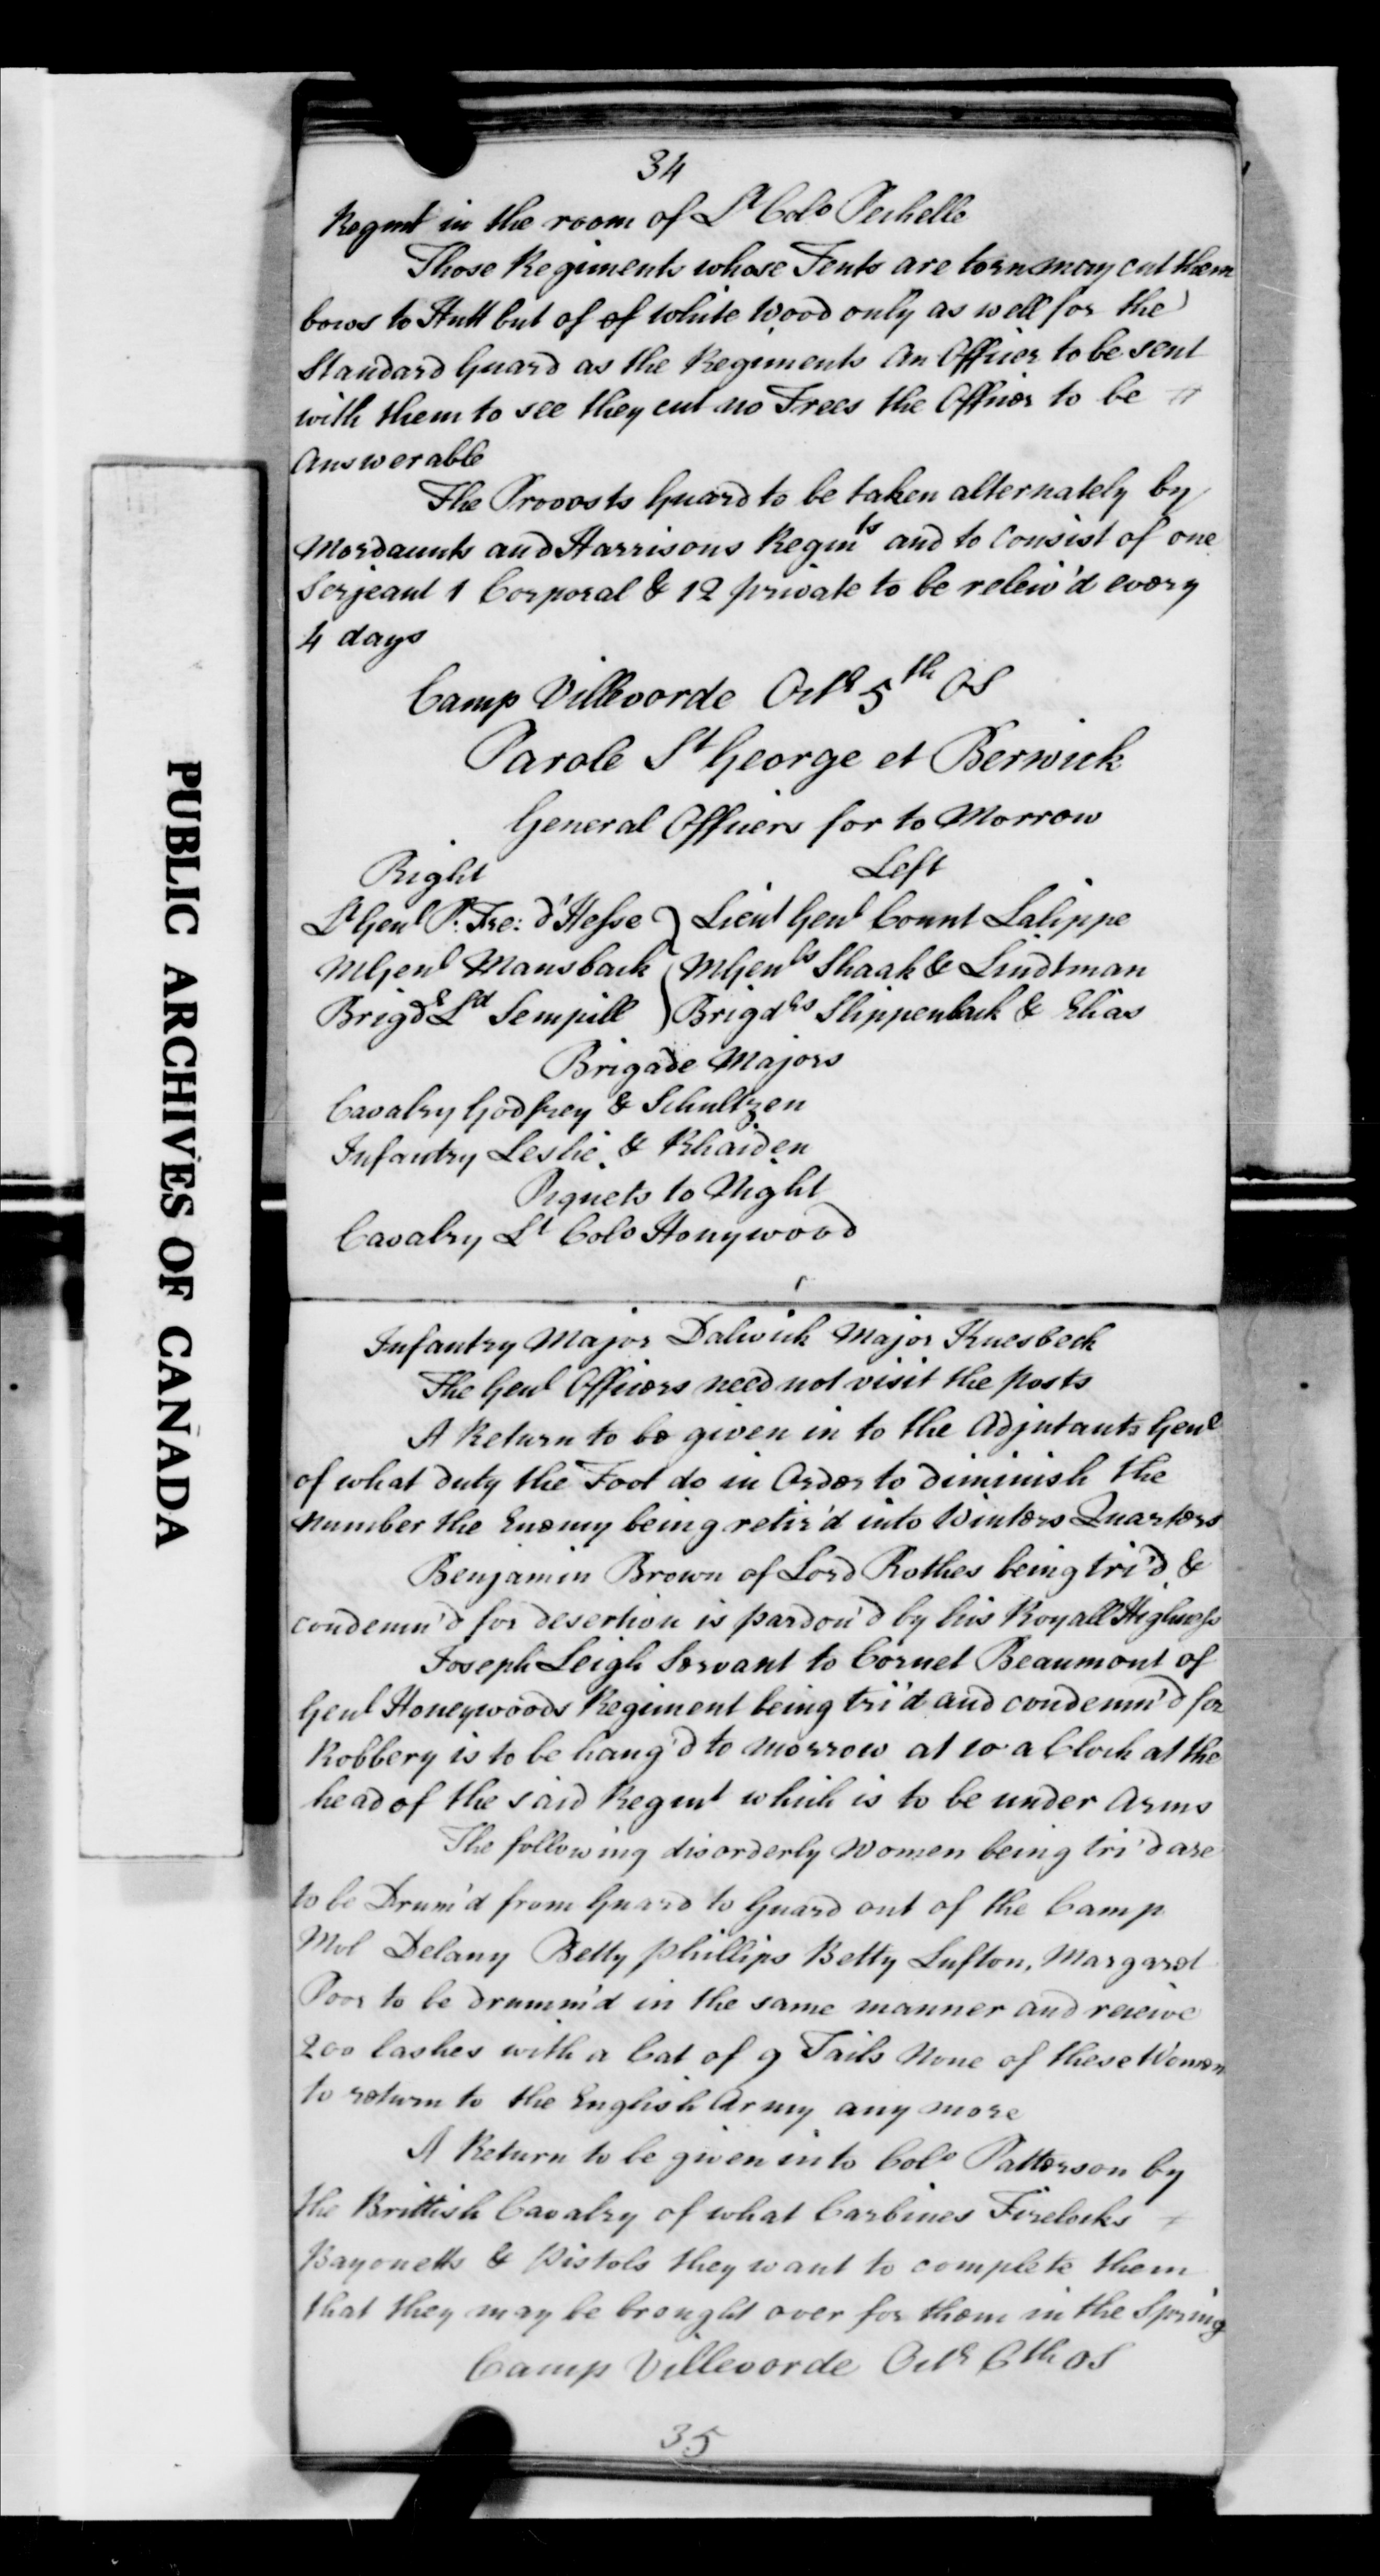 34
Regmt in the room of Lt Colo Pechelle
Those Regiments whose Tents are torn may cut them
bows to Hutt but of of white Wood only as well for the
Standard Guard as the Regiments An Officer to be sent
with them to see they cut no Trees the Officer to be
Answerable
The Provosts Guard to be taken alternately by
Mordaunts and Harrisons Regmts and to Consist of one
Serjeant 1 Corporal & 12 private to be reliev'd every
4 days
Camp Villevorde Octr 5th OS
Parole St George et Berwick
General Officers for to Morrow
Right Left
Lt Genl P. Fre: d'Hesse Lieut Genl Count Lalippe
MGenl Mansback MGenls Shaak & Lindtman
Brigdr Ld Sempill Brigdrs Slippenback & Elias
Brigade Majors
Cavalry Godfrey & Schultzen
Infantry Leslie & Rhaiden
Piquets to Night
Cavalry Lt Colo Honywood
Infantry Major Dalwick Major Knesbeck
The Genl Officers need not visit the posts
A Return to be given in to the Adjutants Genl
of what duty the Foot do in Order to diminish the
Number the Enemy being retir'd into Winters Quarters
Benjamin Brown of Lord Rothes being tri'd &
condemn'd for desertion is pardon'd by his Royall Highness
Joseph Leigh Servant to Cornet Beaumont of
Genl Honeywoods Regiment being tri'd and condemn'd for
Robbery is to be hang'd to morrow at 10 a Clock at the
head of the said Regmt which is to be under Arms
The following disorderly Women being tri'd are
to be Drum'd from Guard to Guard out of the Camp
Mol Delany Betty Phillips Betty Lufton, Margaret
Poor to be drumm'd in the same manner and receive
200 lashes with a Cat of 9 Tails None of these Women
to return to the English Army any more
A Return to be given into Colo Patterson by
the Brittish Cavalry of what Carbines Firelocks
Bayonetts & Pistols they want to complete them
that they may be brought over for them in the Spring
Camp Villevorde Octr 6th OS
35
PUBLIC ARCHIVES OF CANADA